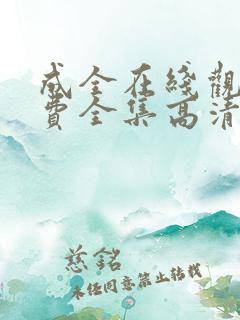 成全在綫觀
費全集高清
慈銘
未经同意禁止转载